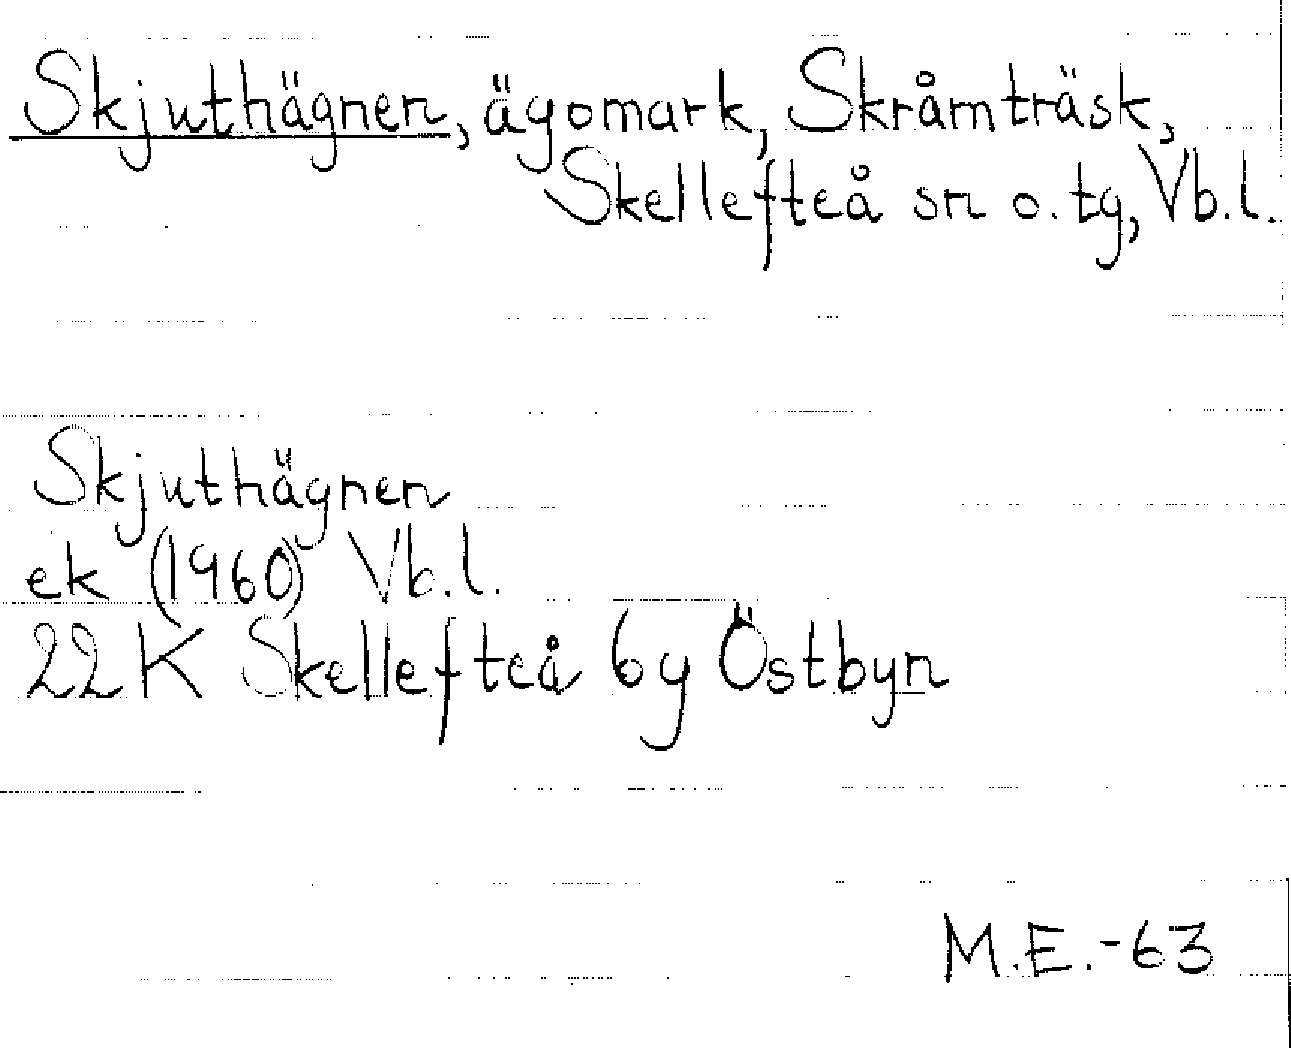 Skjuthägnen, ägomark, Skråmträsk,
Skellefteå sn o. tg, Vb.l.
Skjuthägnen
ek (1960) Vb.l.
22K Skellefteå 6y Östbyn
M.E.-63